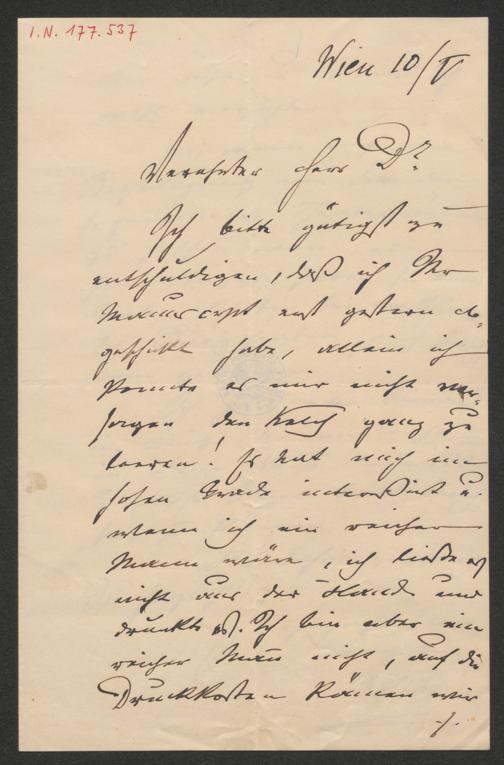 I.N. 177.537
Wien 10/V
Verehrter Herr Dr
Ich bitte gütigst zu
entschuldigen, daß ich Ihr
Manuscript erst gestern ab-
geschickt habe, allein ich
konnte es mir nicht ver-
sagen den Kelch ganz zu
leeren! Es hat mich im
hohen Grade interessirt u.
wenn ich ein reicher
Mann wäre, ich ließe es
nicht aus der Hand und
druckte es. Ich bin aber ein
reicher Mann nicht, auf die
Druckkosten kämen wir
./.